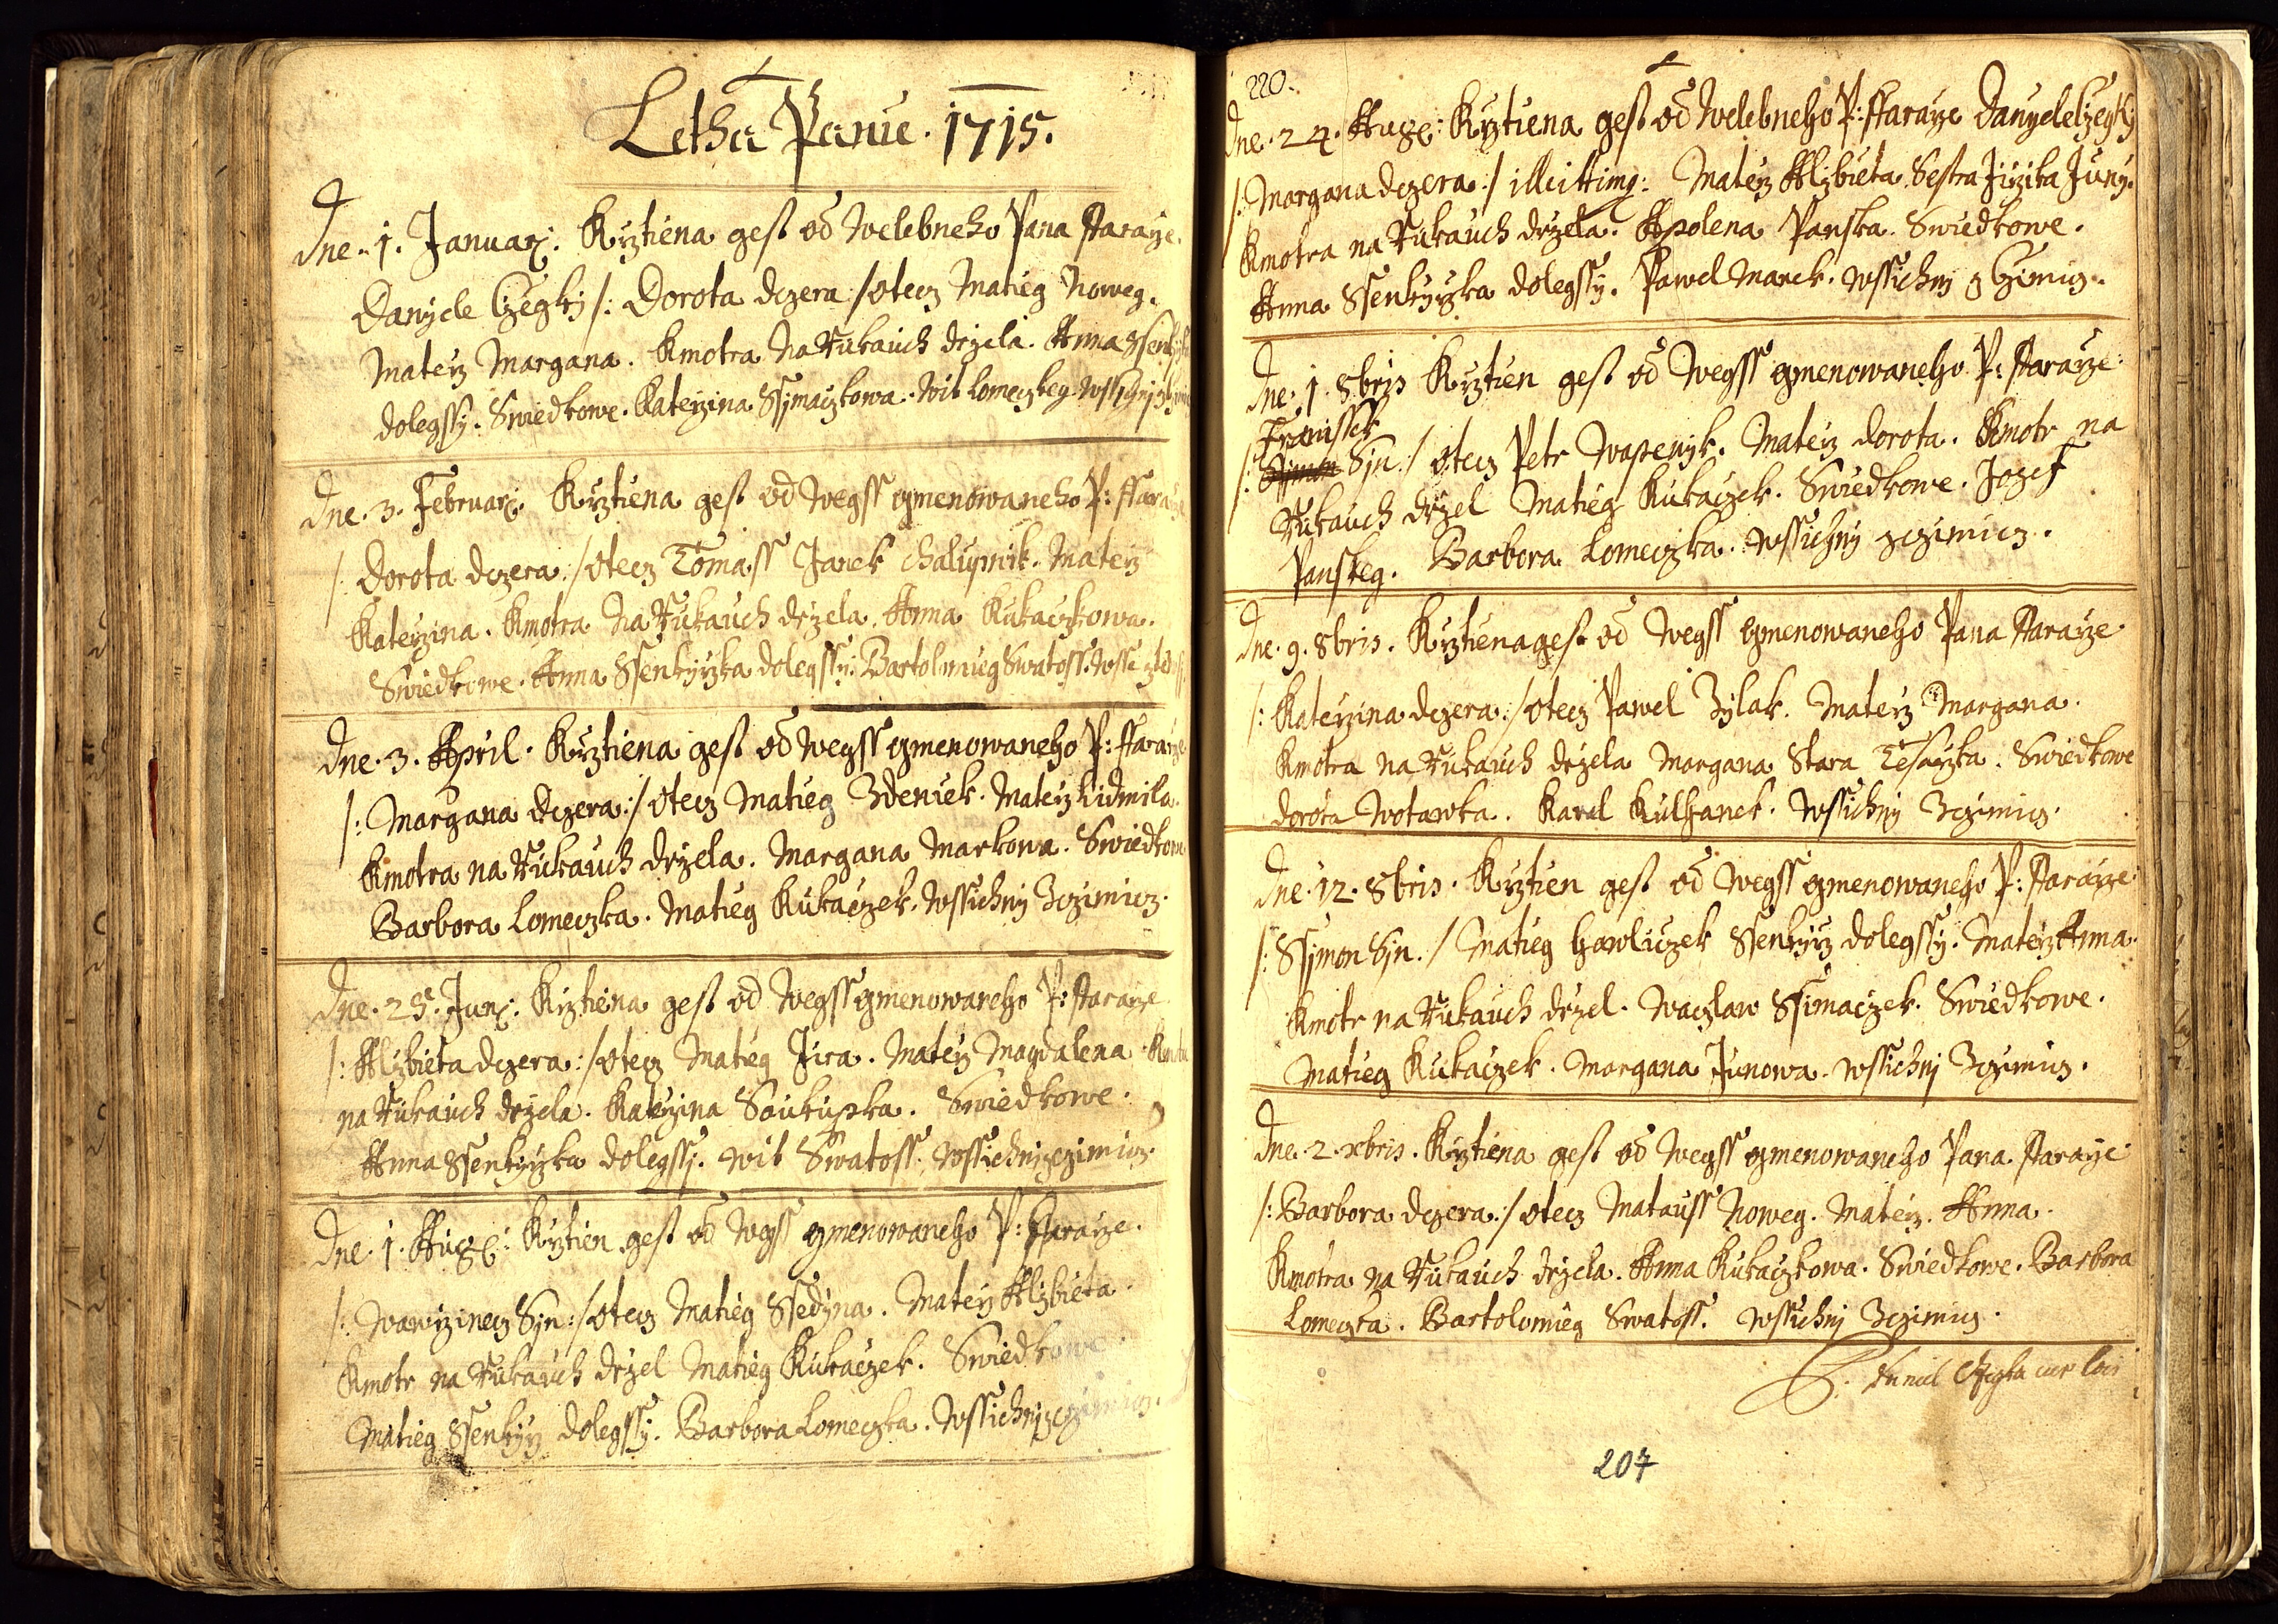 Letha Panie. 1715.
Dne. 1. Januarj. Krztiena gest od Welebneho Pana ffaraze.
Danyele Czegky /: Dorota dczera :/ otecz Matieg Noweg.
Materz Margana. Kmotra Na Rukauch drzela. Anna Ssenkyrzka
dolegssy. Swiedkowe. Katerzina Ssymaczkowa. Wit Lomeczkeg. Wssichnj z
Dne. 3. Februarj. Krztiena gest od Wegss gmenowaneho P: ffaraze
/: Dorota dczera :/ otecz Tomass Janek Chalupnik. Materz
Katerzina. Kmotra Na Rukauch drzela. Anna Kukaczkowa.
Swiedkowe. Anna Ssenkyrzka dolegssy. Bartolomieg Swatoss.
Dne. 3. April. Krztiena gest od wegss gmenowaneho P: ffaraze
/: Margana dczera :/ otecz Matieg Zdeniek. Materz Lidmila.
Kmotra na Rukauch drzela. Margana Markowa. Swiedkowe
Barbora Lomeczka. Matieg Kukaczek. Wssichnj Zczimicz.
Dne. 25. Junj. Krztiena gest od Wegss gmenowaneho P: ffaraze
/: Alzbieta dczera :/ otecz Matieg Jira. Materz Magdalena. Kmotra
na Rukauch drzela. Katerzina Saukupka. Swiedkowe.
Anna Ssenkyrzka dolegssj. Wit Swatoss. Wssichnj zczimicz.
Dne. 1. Aug: Krztien gest od Wegss gmenowaneho P: ffaraze.
/: Wawrzinecz Syn :/ otecz Matieg Ssedyna. Materz Alzbieta.
Kmotr na Rukauch drzel Matieg Kukaczek. Swiedkowe
Matieg Ssenkyrz dolegssy. Barbora Lomeczka. Wssichnj zczimicz.
220.
Dne. 24. Aug: Krztiena gest od Welebneho P: ffaraze Danyele Czegky
/: Margana dczera :/ illeittimg: Materz Alzbieta Sestra Jirzika Juny.
Kmotra na Rukauch drzela. Apolena Panska. Swiedkowe.
Anna Ssenkyrzka dolegssy. Pawel Marek. Wssichnj z Czimicz.
Dne. 1. 8bris Krztien gest od Wegss gmenowaneho P: ffaraze
Franissek
/: Ssimon Syn :/ otecz Petr Wapenyk. Materz dorota. Kmotr na
Rukauch drzel Matieg Kukaczek. Swiedkowe. Jozef
Panskeg. Barbora Lomeczka. Wssichnj zczimicz.
Dne. 9. 8bris. Krztiena gest od Wegss gmenowaneho Pana ffaraze
/: Katerzina dczera :/ otecz Pawel Zylak. Materz Margana.
Kmotra na Rukauch drzela Margana Stara Tesarzka. Swiedkowe
dorota Wotawka. Karel Kulhanek. Wssichnj Zczimicz.
Dne. 12. 8bris. Krztien gest od Wegss gmenowaneho P: ffaraze
/: Ssymon Syn. / Matieg Hawliczek Ssenkyrz dolegssy. Materz Anna.
Kmotr na Rukauch drzel. Waczlaw Ssimaczek. Swiedkowe.
Matieg Kukaczek. Margana Junowa. Wssichnj Zczimicz.
Dne. 2. xbris. Krztiena gest od Wegss gmenowaneho Pana ffaraze
/: Barbora dczera :/ otecz Matauss Noweg. Materz. Anna.
Kmotra na Rukauch drzela. Anna Kukaczkowa. Swiedkowe. Barbora
Lomeczka. Bartolomieg Swatoss. Wssichnj Zczimicz.
207